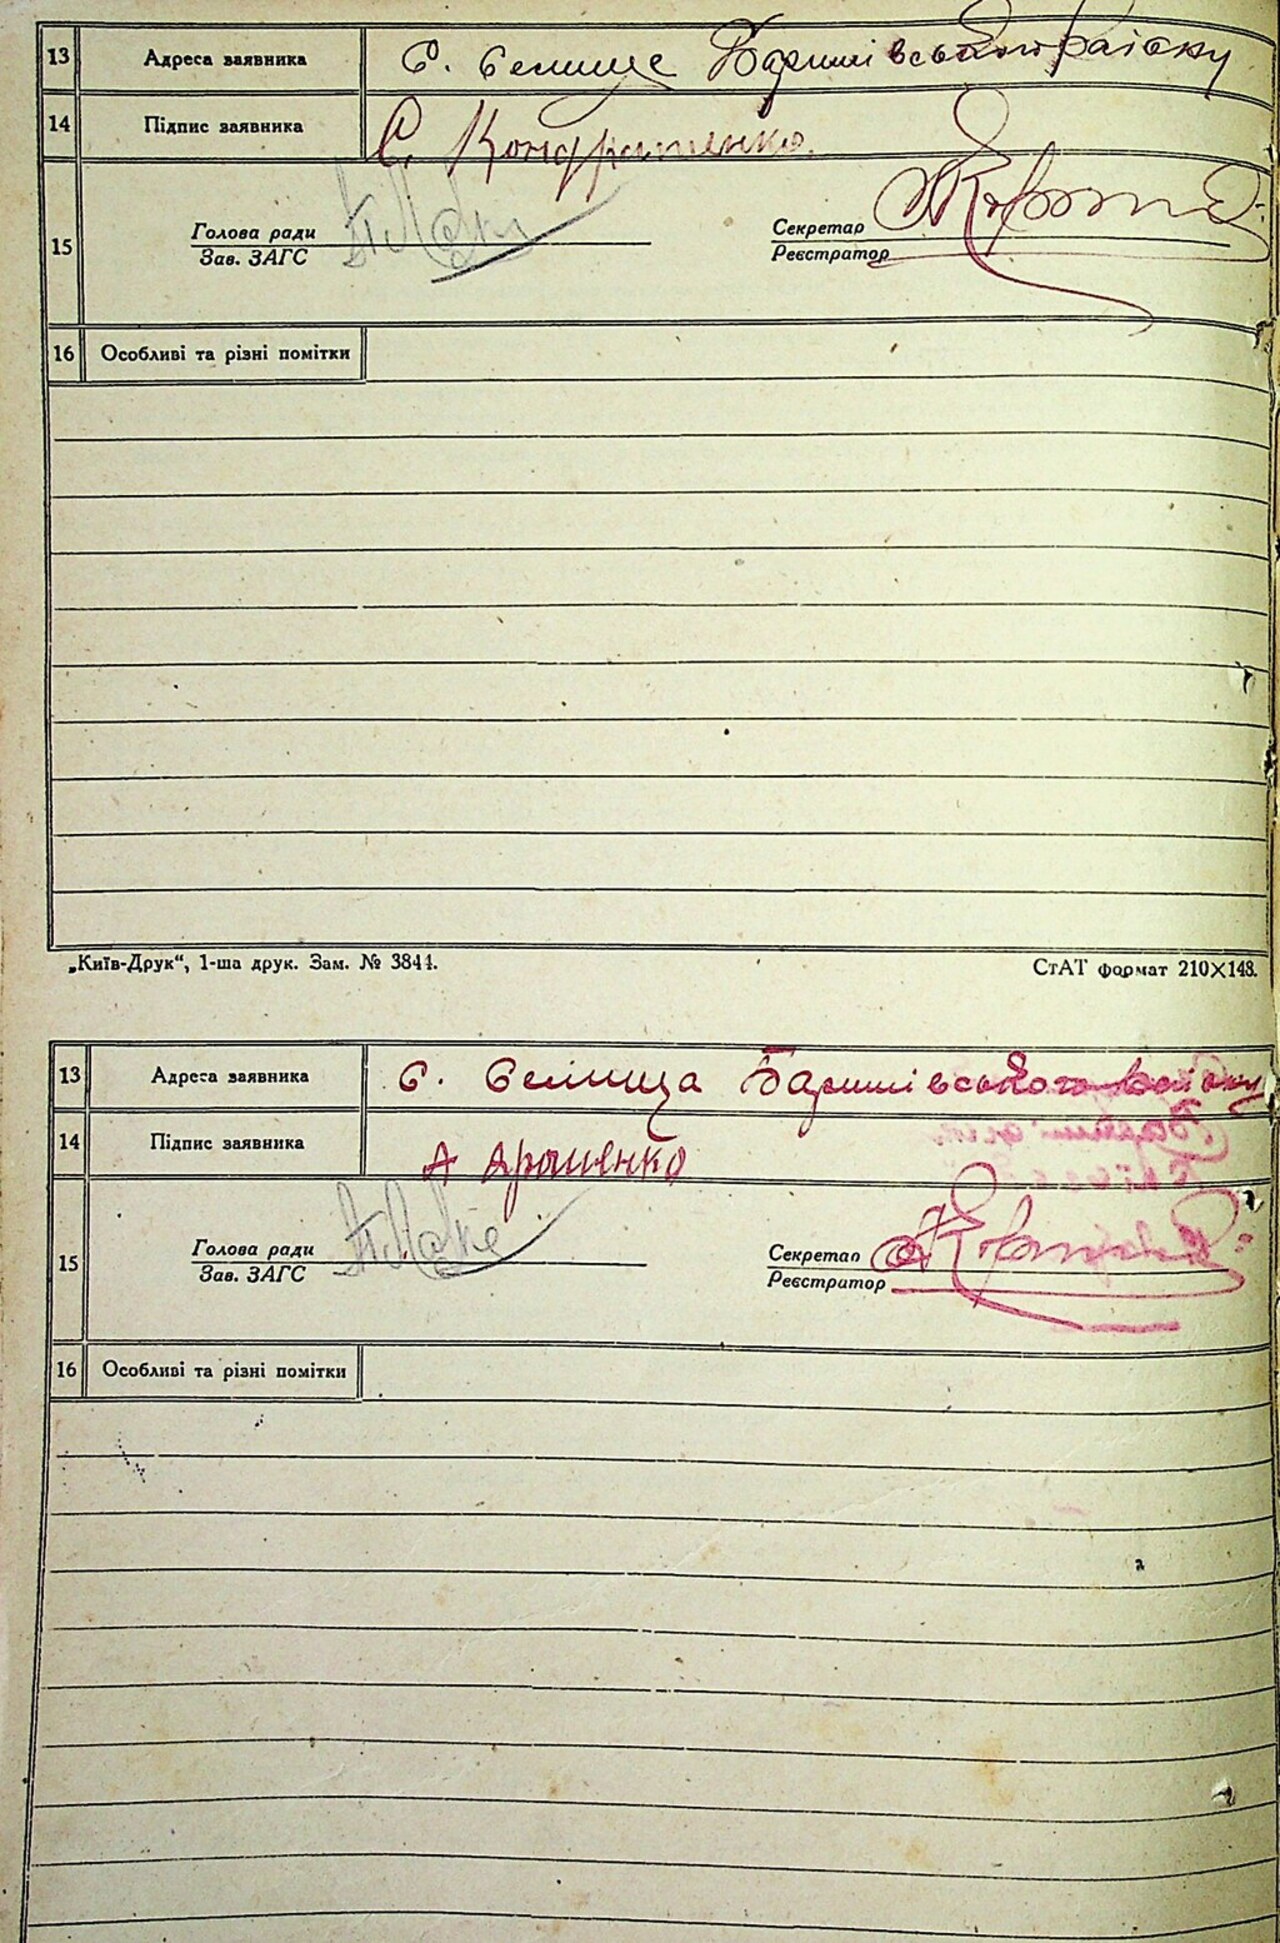 13 Адреса заявника с. Селище Баришівського району
14 Підпис заявника С. Кондратенко.
15 Голова ради Секретар
Зав. ЗАГС Реєстратор
16 Особливі та різні помітки
„Київ-Друк“, 1-ша друк. Зам. № 3844. СтАТ формат 210×148.
13 Адреса заявника с. Селища Баришівського району
14 Підпис заявника А
15 Голова ради Секретар
Зав. ЗАГС Реєстратор
16 Особливі та різні помітки